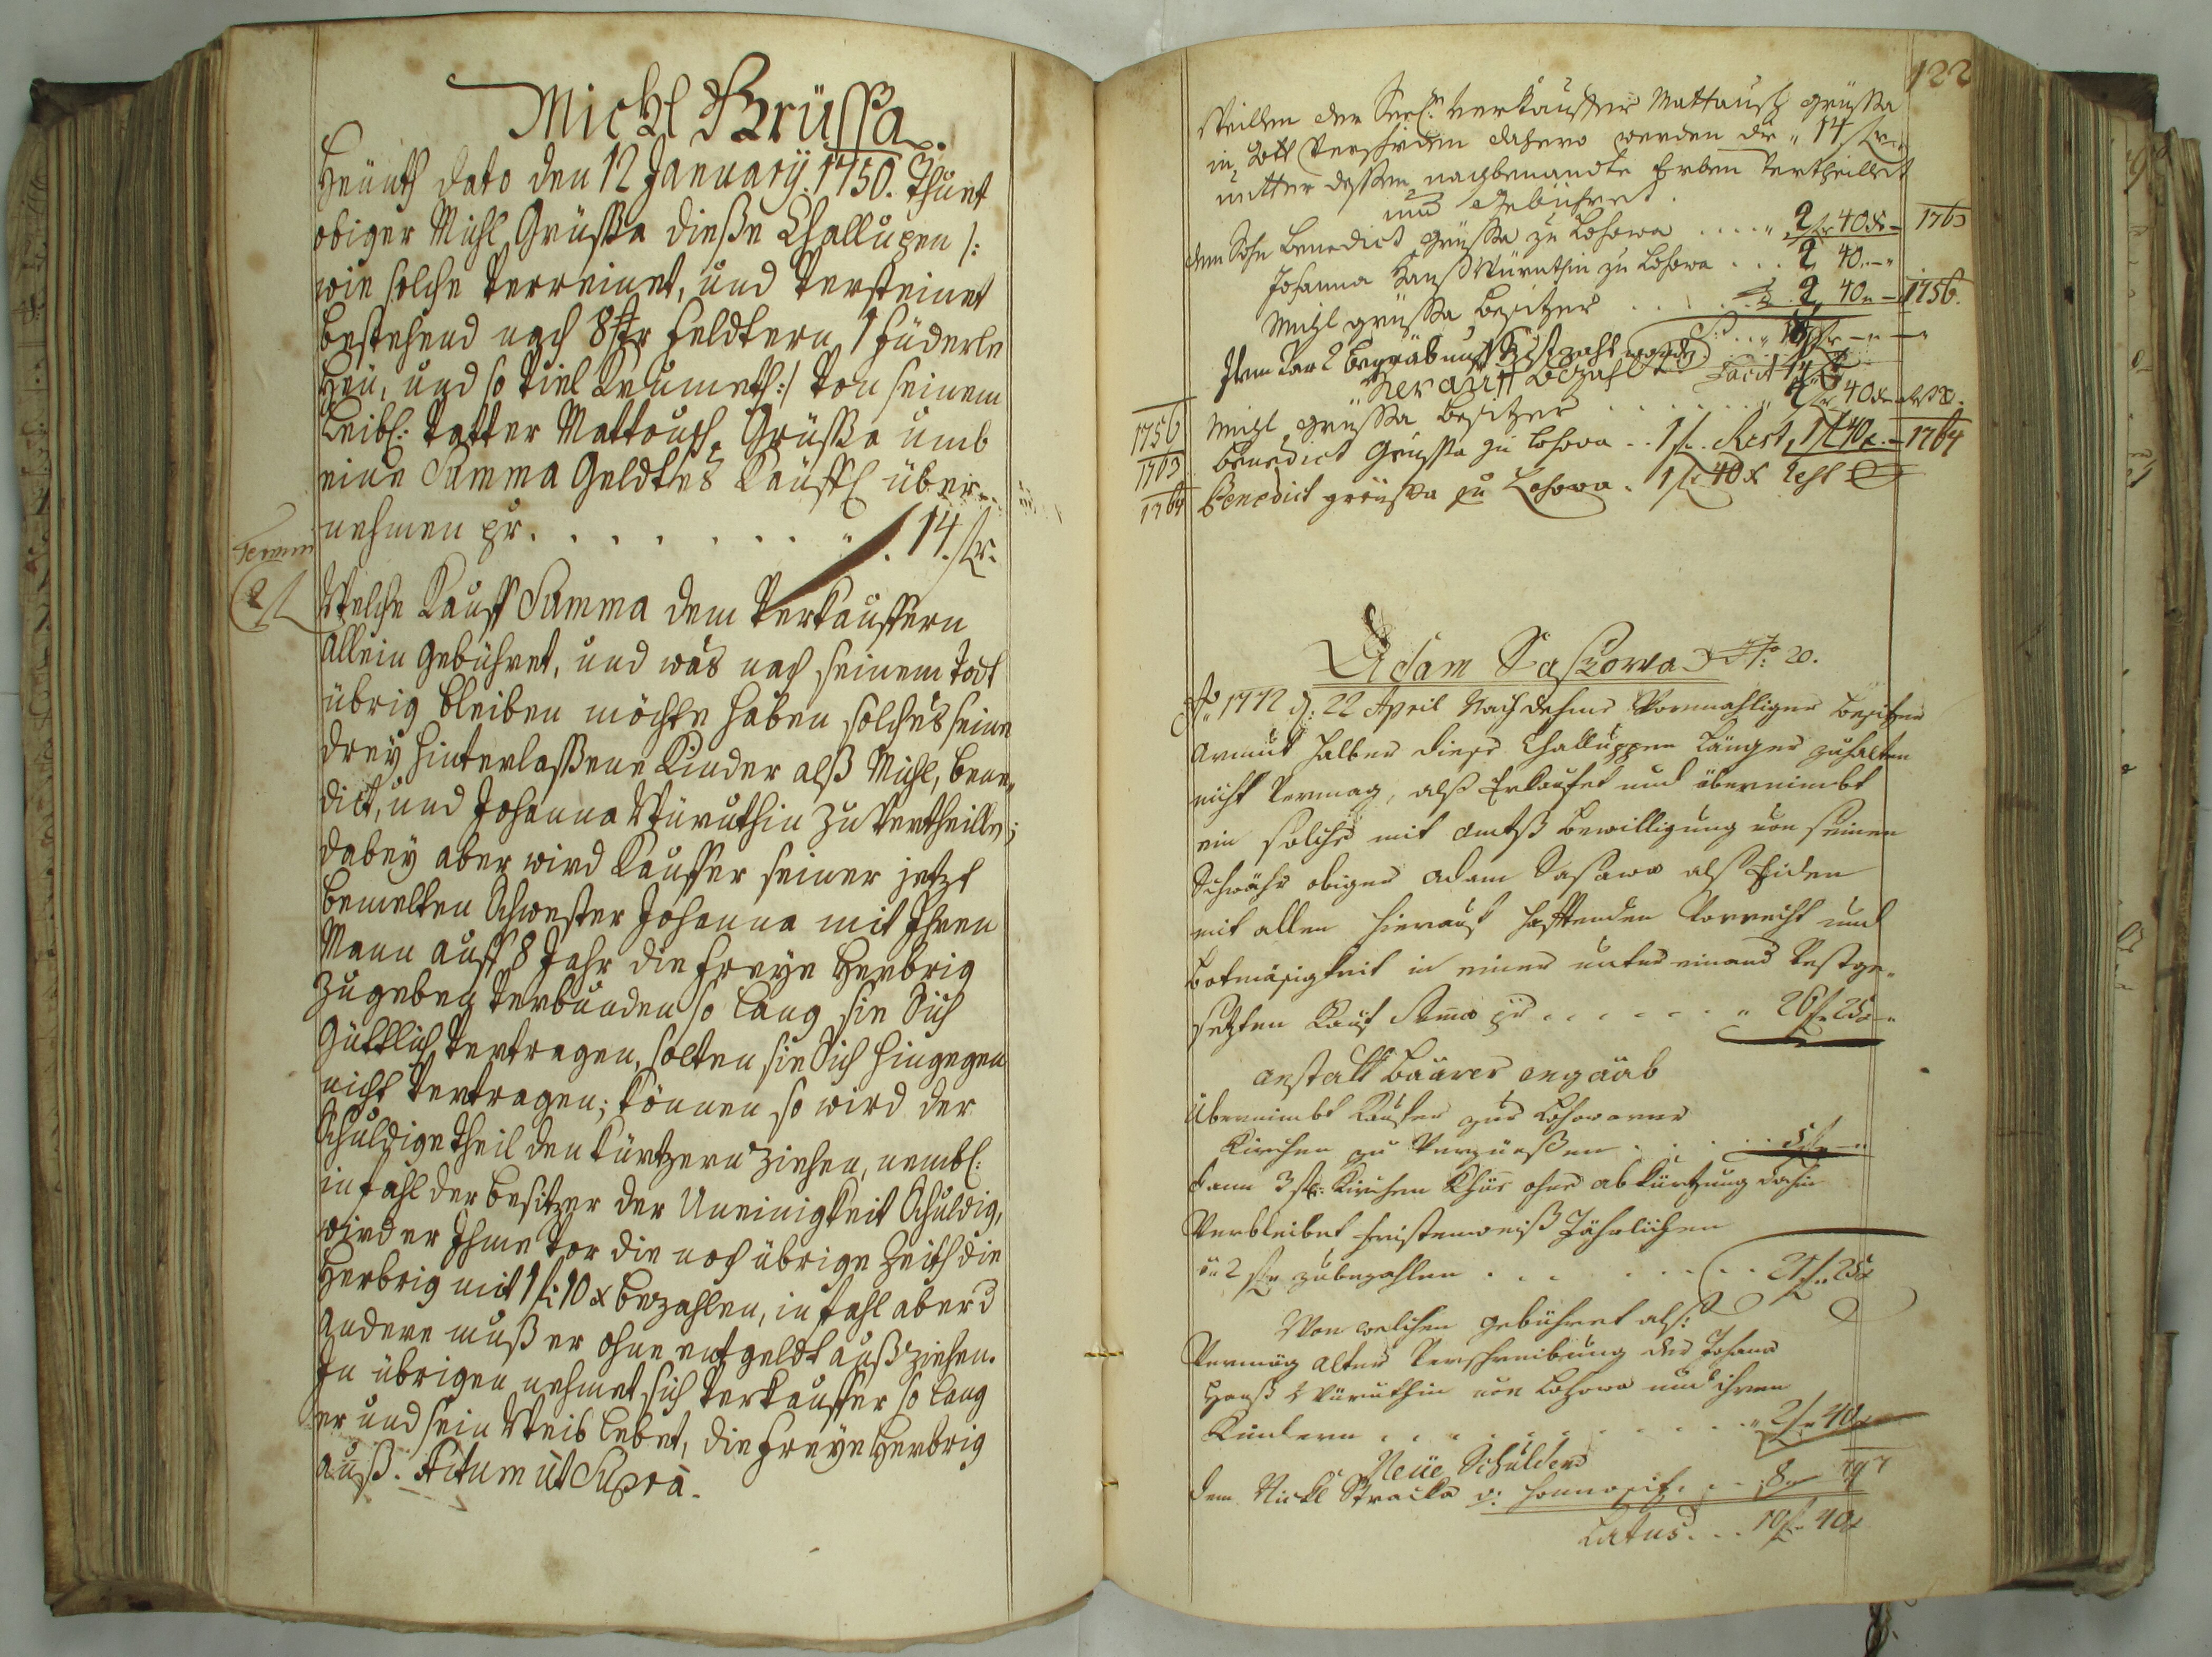 Michl Grüssa.
Heünth dato den 12 January. 1750. Thuet
obiger Michl Grüßa dieße Challupen /:
wie solche verreinet, und versteinet
bestehend nach 8 Str Feldtern 1 Füderle
Heü, und so viel Krumeth :/ von seinem
Leibl: Vatter Mattousch Grüßa umb
eine Summa Geldtes Käuffl. über-
nehmen pr. . . . . . . . „ 14. fl.
Termin
2 fl
Welche Kauff Summa dem Verkauffern
allein gebühret, und was nach seinem Todt
übrig bleiben möchte haben solches seine
drey hinterlaßene Kinder alß Michl, Bene„
dict, und Johanna Würuthin zu vertheillen;
dabey aber wird Kauffer seiner jetzt
bemelten Schwester Johanna mit Ihren
Mann auff 8 Jahr die Freye Herbrig
zugeben verbunden so lang sie Sich
güttlich vertragen, solten sie Sich hingegen
nicht vertragen; können so wird der
Schuldige Theil den Kürtzern ziehen, nembl:
in Fahl der Besitzer der Uneinigkeit Schuldig,
wird er Ihme vor die noch übrige Zeith die
Herbrig mit 1 f: 10 x bezahlen, in Fahl aber d
andere muß er ohne entgeldt außziehen.
In übrigen nehmet sich Verkauffer so lang
er und sein Weib lebet, die Freye Herbrig
auß. Actum ut Supra.
122
Weillen der Verkauffer Mattausch Grüssa
in Gott verschieden dahero werden die „ 14 fl.
unter dessen nachbenandte Erben vertheillet
und gebühret.
dem Sohn Benedict Grüssa zu Lohowa . . . . „ 2 f 40 x - 1763
Johanna Hanß Würuthin zu Lohowa . . . 2 40 . - „
Michl Grüssa Besitzer . . . . . 2 40 „ - 1756.
Hierauff bezahlt
Facit 14 f
1756 Michl Grüssa Besitzer . . . . . . . 2 f 40 x
1763 Benedict Grüssa zu Lohowa . . 1 f. Rest, 1 f 40 x. - 1764
1764 Benedict Grüssa zu Lohowa . 1 f 40 x
Adam Saßowa No: 20.
Ao 1772 d: 22 April Nach dehme Vormahliger Besitzer
armut halber diese Challuppen länger zuhalten
nicht vermag, alß Erkaufet und übernimbt
ein solche mit Amtß Bewilligung von seinen
Schwähr obiger Adam Sasawa alß Eiden
mit allen hierauf hafftenden Vorrecht und
Botmäsigkeit in einer unter einand Vestge„
setzten Kauf Suma pr . . . . . . „ 26 f 25 x „
anstatt Baarer angaab
Übernimbt Kaufer zur Lohowaer
Kirchen zu verzinßen . . . . . 5 f „ „
dann 3 stk: Kirchen Khüe ohne abkürtzung dahin
Verbleibet fristenweiß Jährlichen
à 2 f zubezahlen . . . . . . . . 21 f 25 x
Von welchen gebühret alß:
Vermög alter Verschreibung der Johana
Hanß Würuthin von Lohowa und ihren
Kindern . . . . . . . . . „ 2 f 40 x
Neüe Schulden
dem Nickl Stracka . . . 8 „
Latus . . . 10 f 40 x